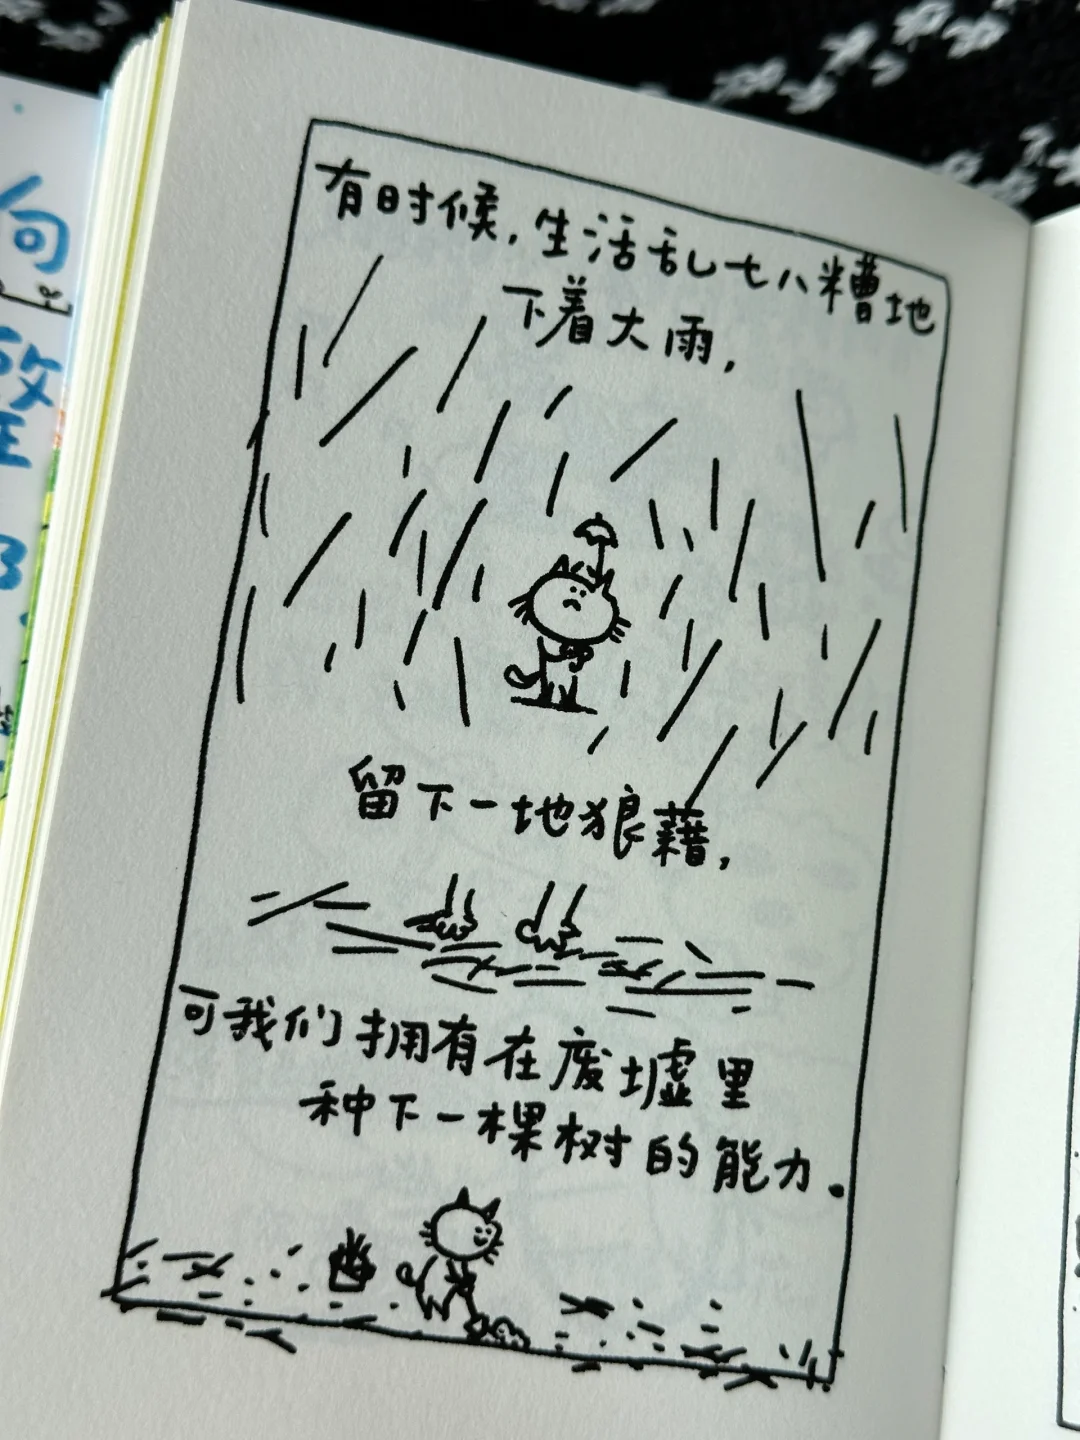 有时候，生活乱七八糟地
下着大雨，
留下一地狼藉，
可我们拥有在废墟里
种下一棵树的能力.
向